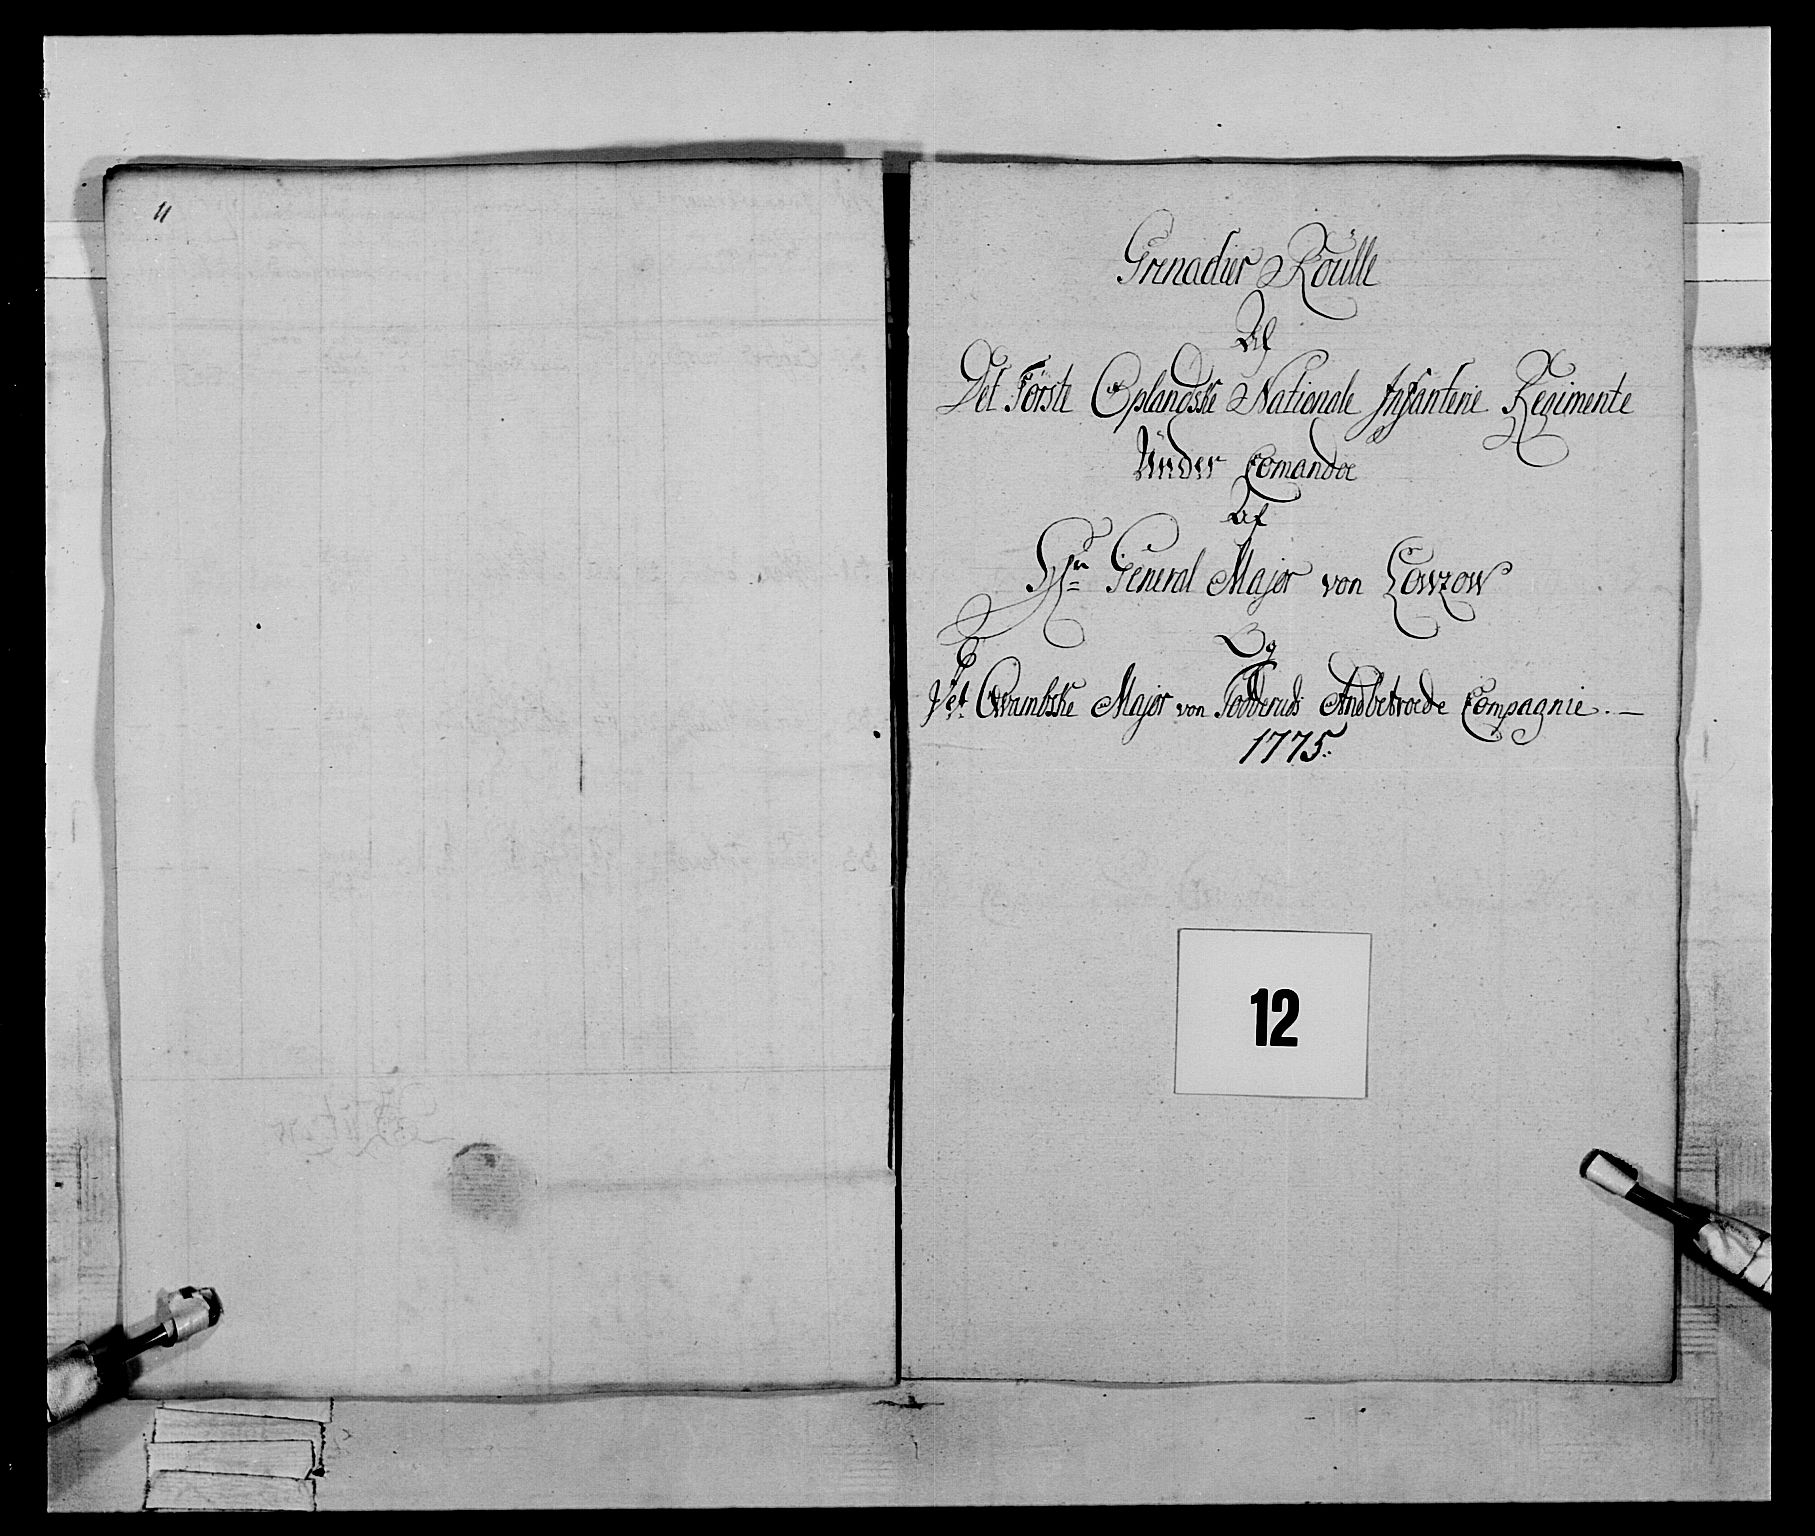 11
Grenadier Roulle
Af
Det Förste Oplandske Nationale Infanterie Regimente
Under Comando
Af
Hr General Major von Lowzow
Og
Det Major von Anbetroede Compagnie.
1775.
12